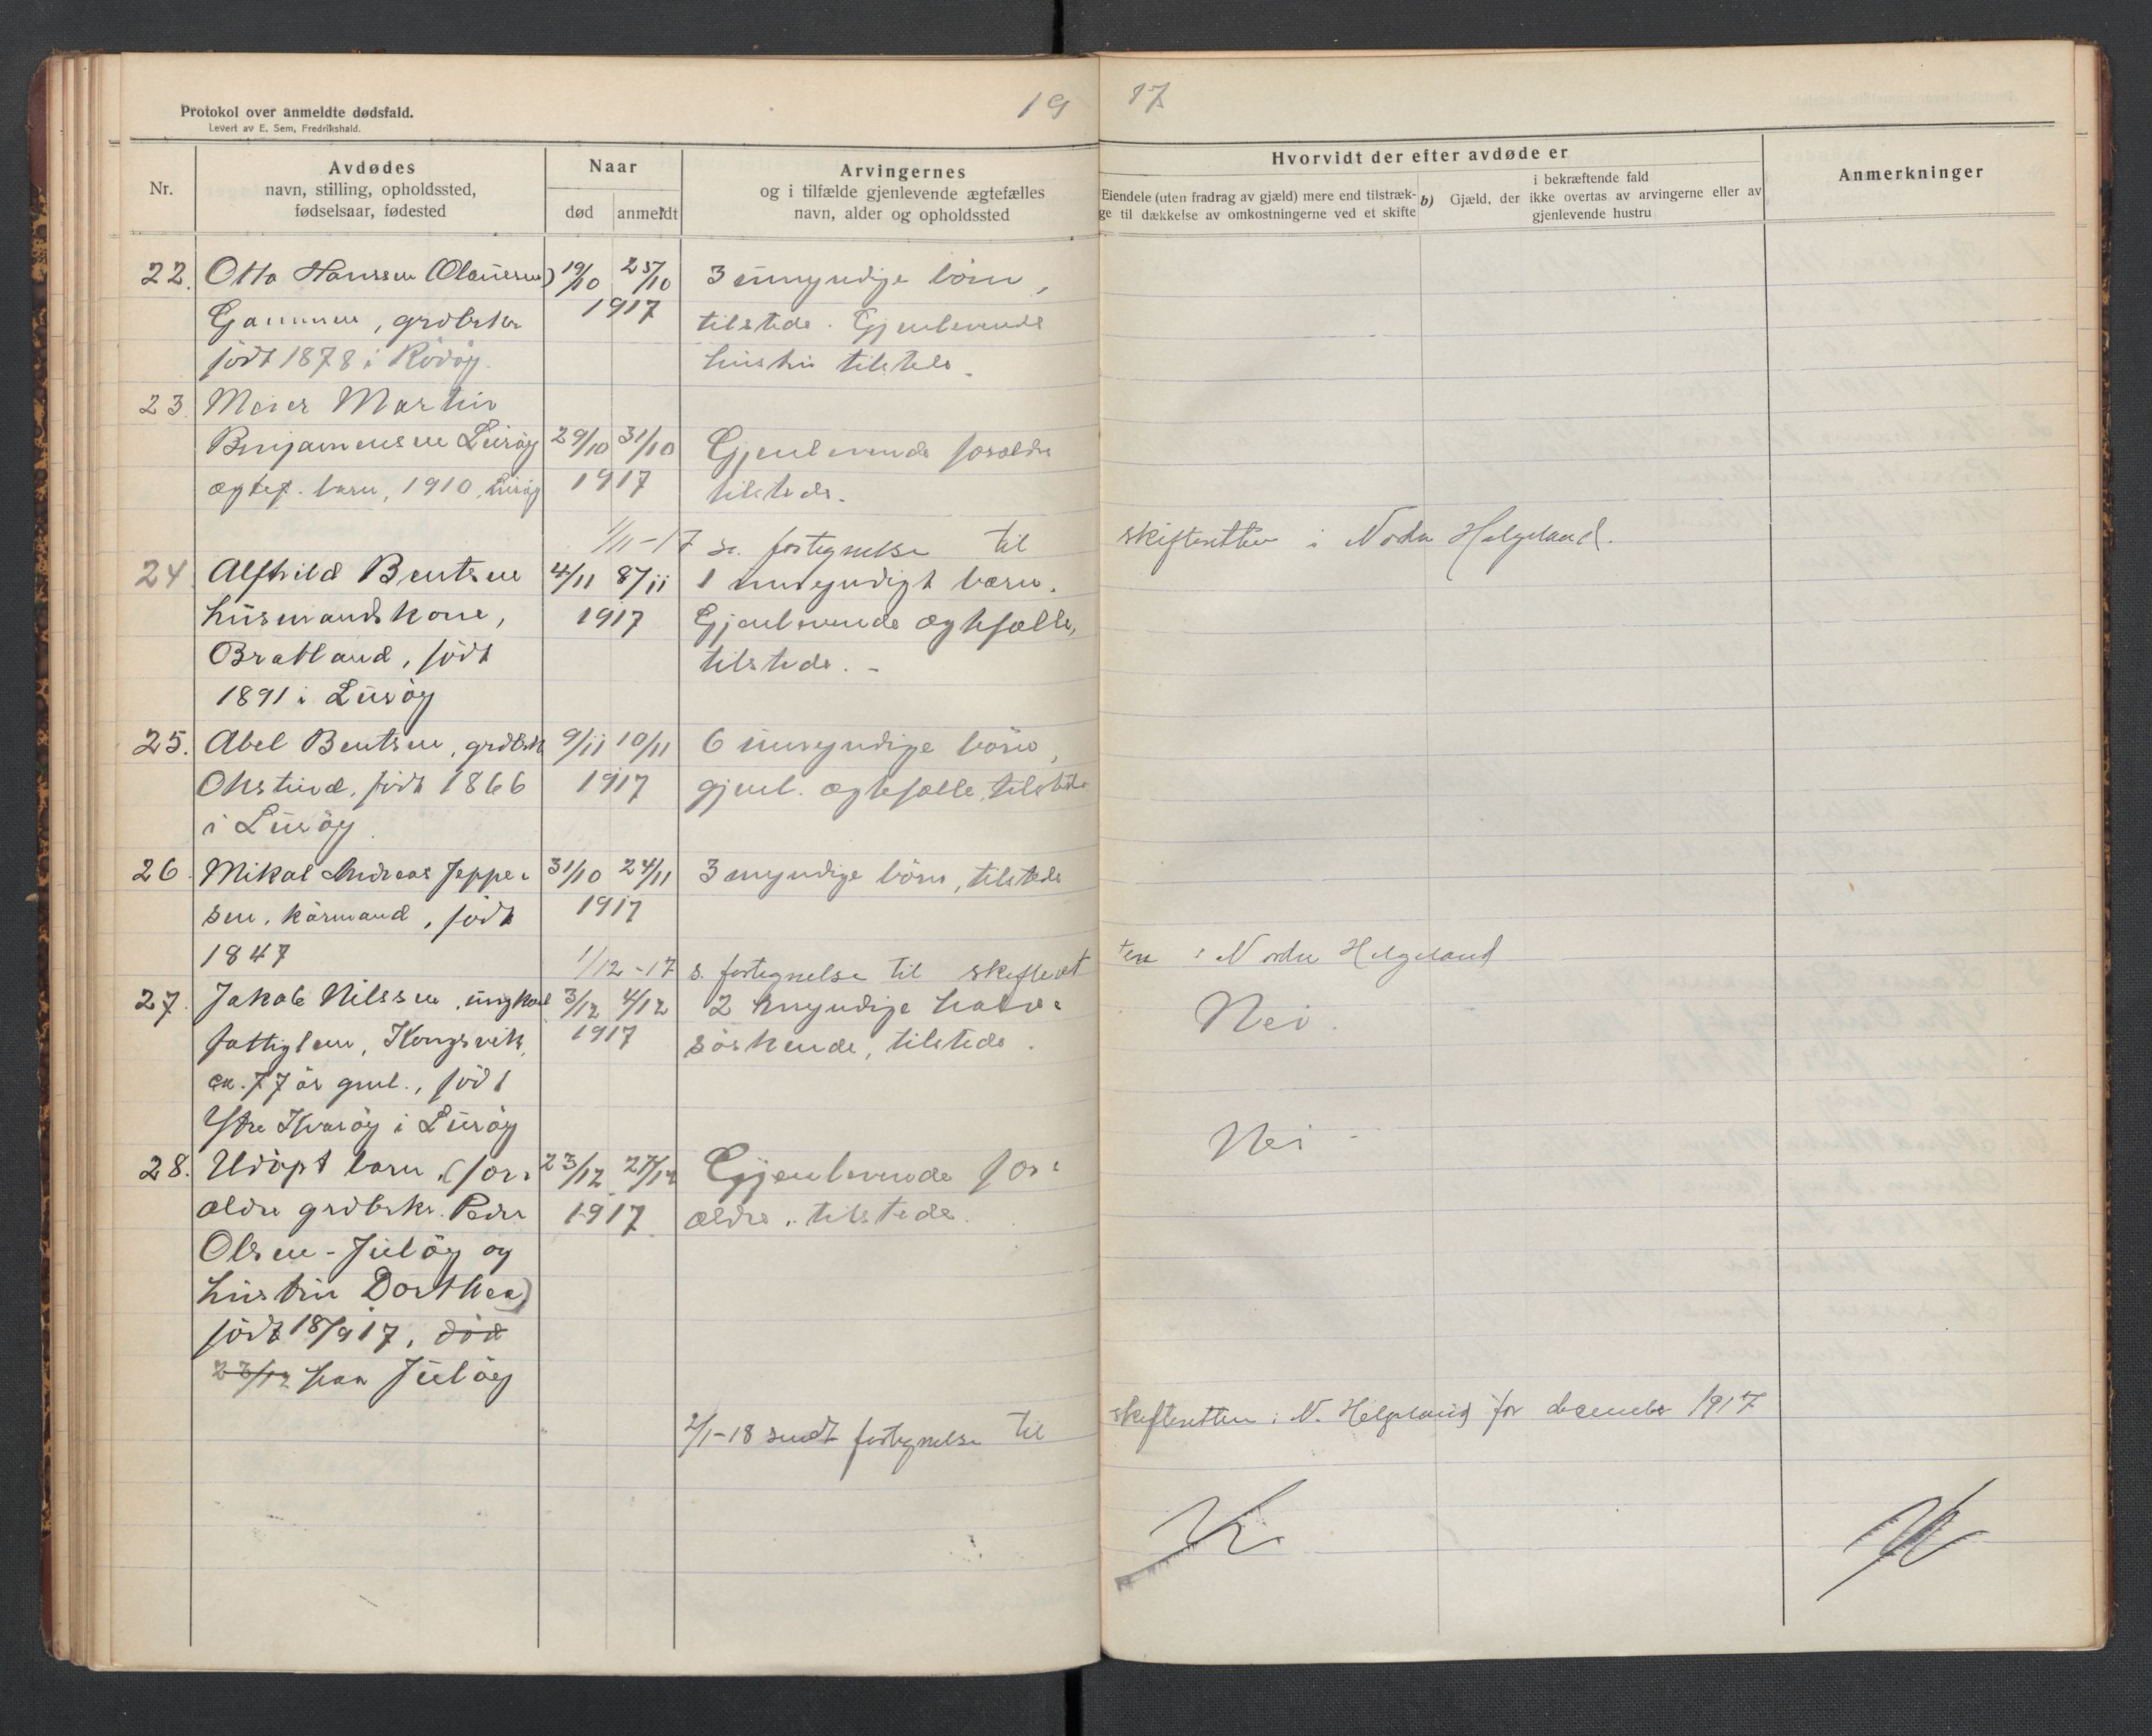 Protokol over anmeldte dødsfald.
Levert av E. Sem, Fredrikshald.
19 17
Nr.
Avdødes
navn, stilling, opholdssted,
fødselsaar, fødested
Naar
død anmeldt
Arvingernes
og i tilfælde gjenlevende ægtefælles
navn, alder og opholdssted
Hvorvidt der efter avdøde er
Eiendele (uten fradrag av gjæld) mere end tilstræk-
ge til dækkelse av omkostningerne ved et skifte
b)
i bekræftende fald
Gjæld, der ikke overtas av arvingerne eller av
gjenlevende hustru
Anmerkninger
22. Otto Hanssen (Olaussen) 19/10 25/10 3 umyndige börn,
grdbrker 1917 tilstede. Gjenlevende
födt 1878 i Rödöy. hustru tilstede.
23. Meier Martin
Benjaminsen Luröy 29/10 31/10 Gjenlevende forældre
ægtef. barn, 1910, Luröy 1917 tilstede.
1/11-17 s. fortegnelse til skifteretten i Nordre Helgeland.
24. Alfhild Bentsen 4/11 8/11 1 umyndigt barn.
husmandskone, 1917 Gjenlevende ægtefælle,
Bratland, födt tilstede. -
1891 i Luröy
25. Abel Bentsen, grdbrk 9/11 10/11 6 umyndige börn,
födt 1866 1917 gjenl. ægtefælle, tilstede
i Luröy.
26. Mikal Andreas Jeppe= 31/10 24/11 3 myndige börn, tilstede
sen, kårmand, födt 1917
1847
1/12-17 s. fortegnelse til skifteret ten i Nordre Helgeland
27. Jakob Nilssen, ungkarl 3/12 4/12 2 myndige halv= Nei.
fattiglem, Kongsvik, 1917 söskende, tilstede.
ca. 77 år gml., födt
Ytre Kvaröy i Luröy Nei -
28. Udöpt barn, (for= 23/12 27/12 Gjenlevende for=
ældre grdbrkr. Peder 1917 ældre, tilstede.
Olsen - Julöy og
hustru Dorthea)
födt 18/9 17, död
23/12 paa Julöy
2/1-18 sendt fortegnelse til skifteretten i N. Helgeland for december 1917